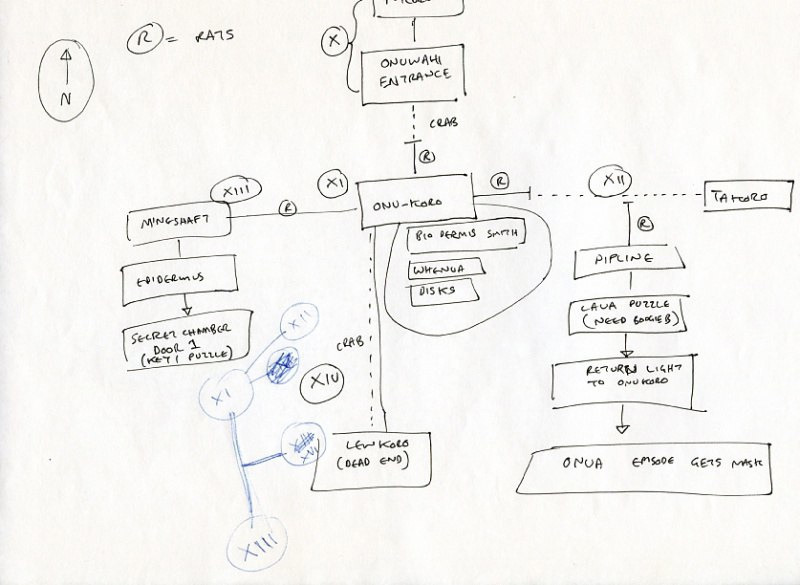 R = RATS
N
X
ONUWAHI
ENTRANCE
CRAB
R
XIII
XI
R
XII
MINESHAFT
R
ONU-KORO
TAKORO
BIO DERMIS SMITH
R
EPIDERMUS
WHENUA
PIPLINE
DISKS
SECRET CHAMBER
DOOR 1
(KEY 1 PUZZLE)
LAVA PUZZLE
(NEED BOOGIEB)
XII
CRAB
XIV
RETURN LIGHT
TO ONUKORO
XI
LEWKORO
(DEAD END)
XVI
ONUA EPISODE GETS MASK
XIII